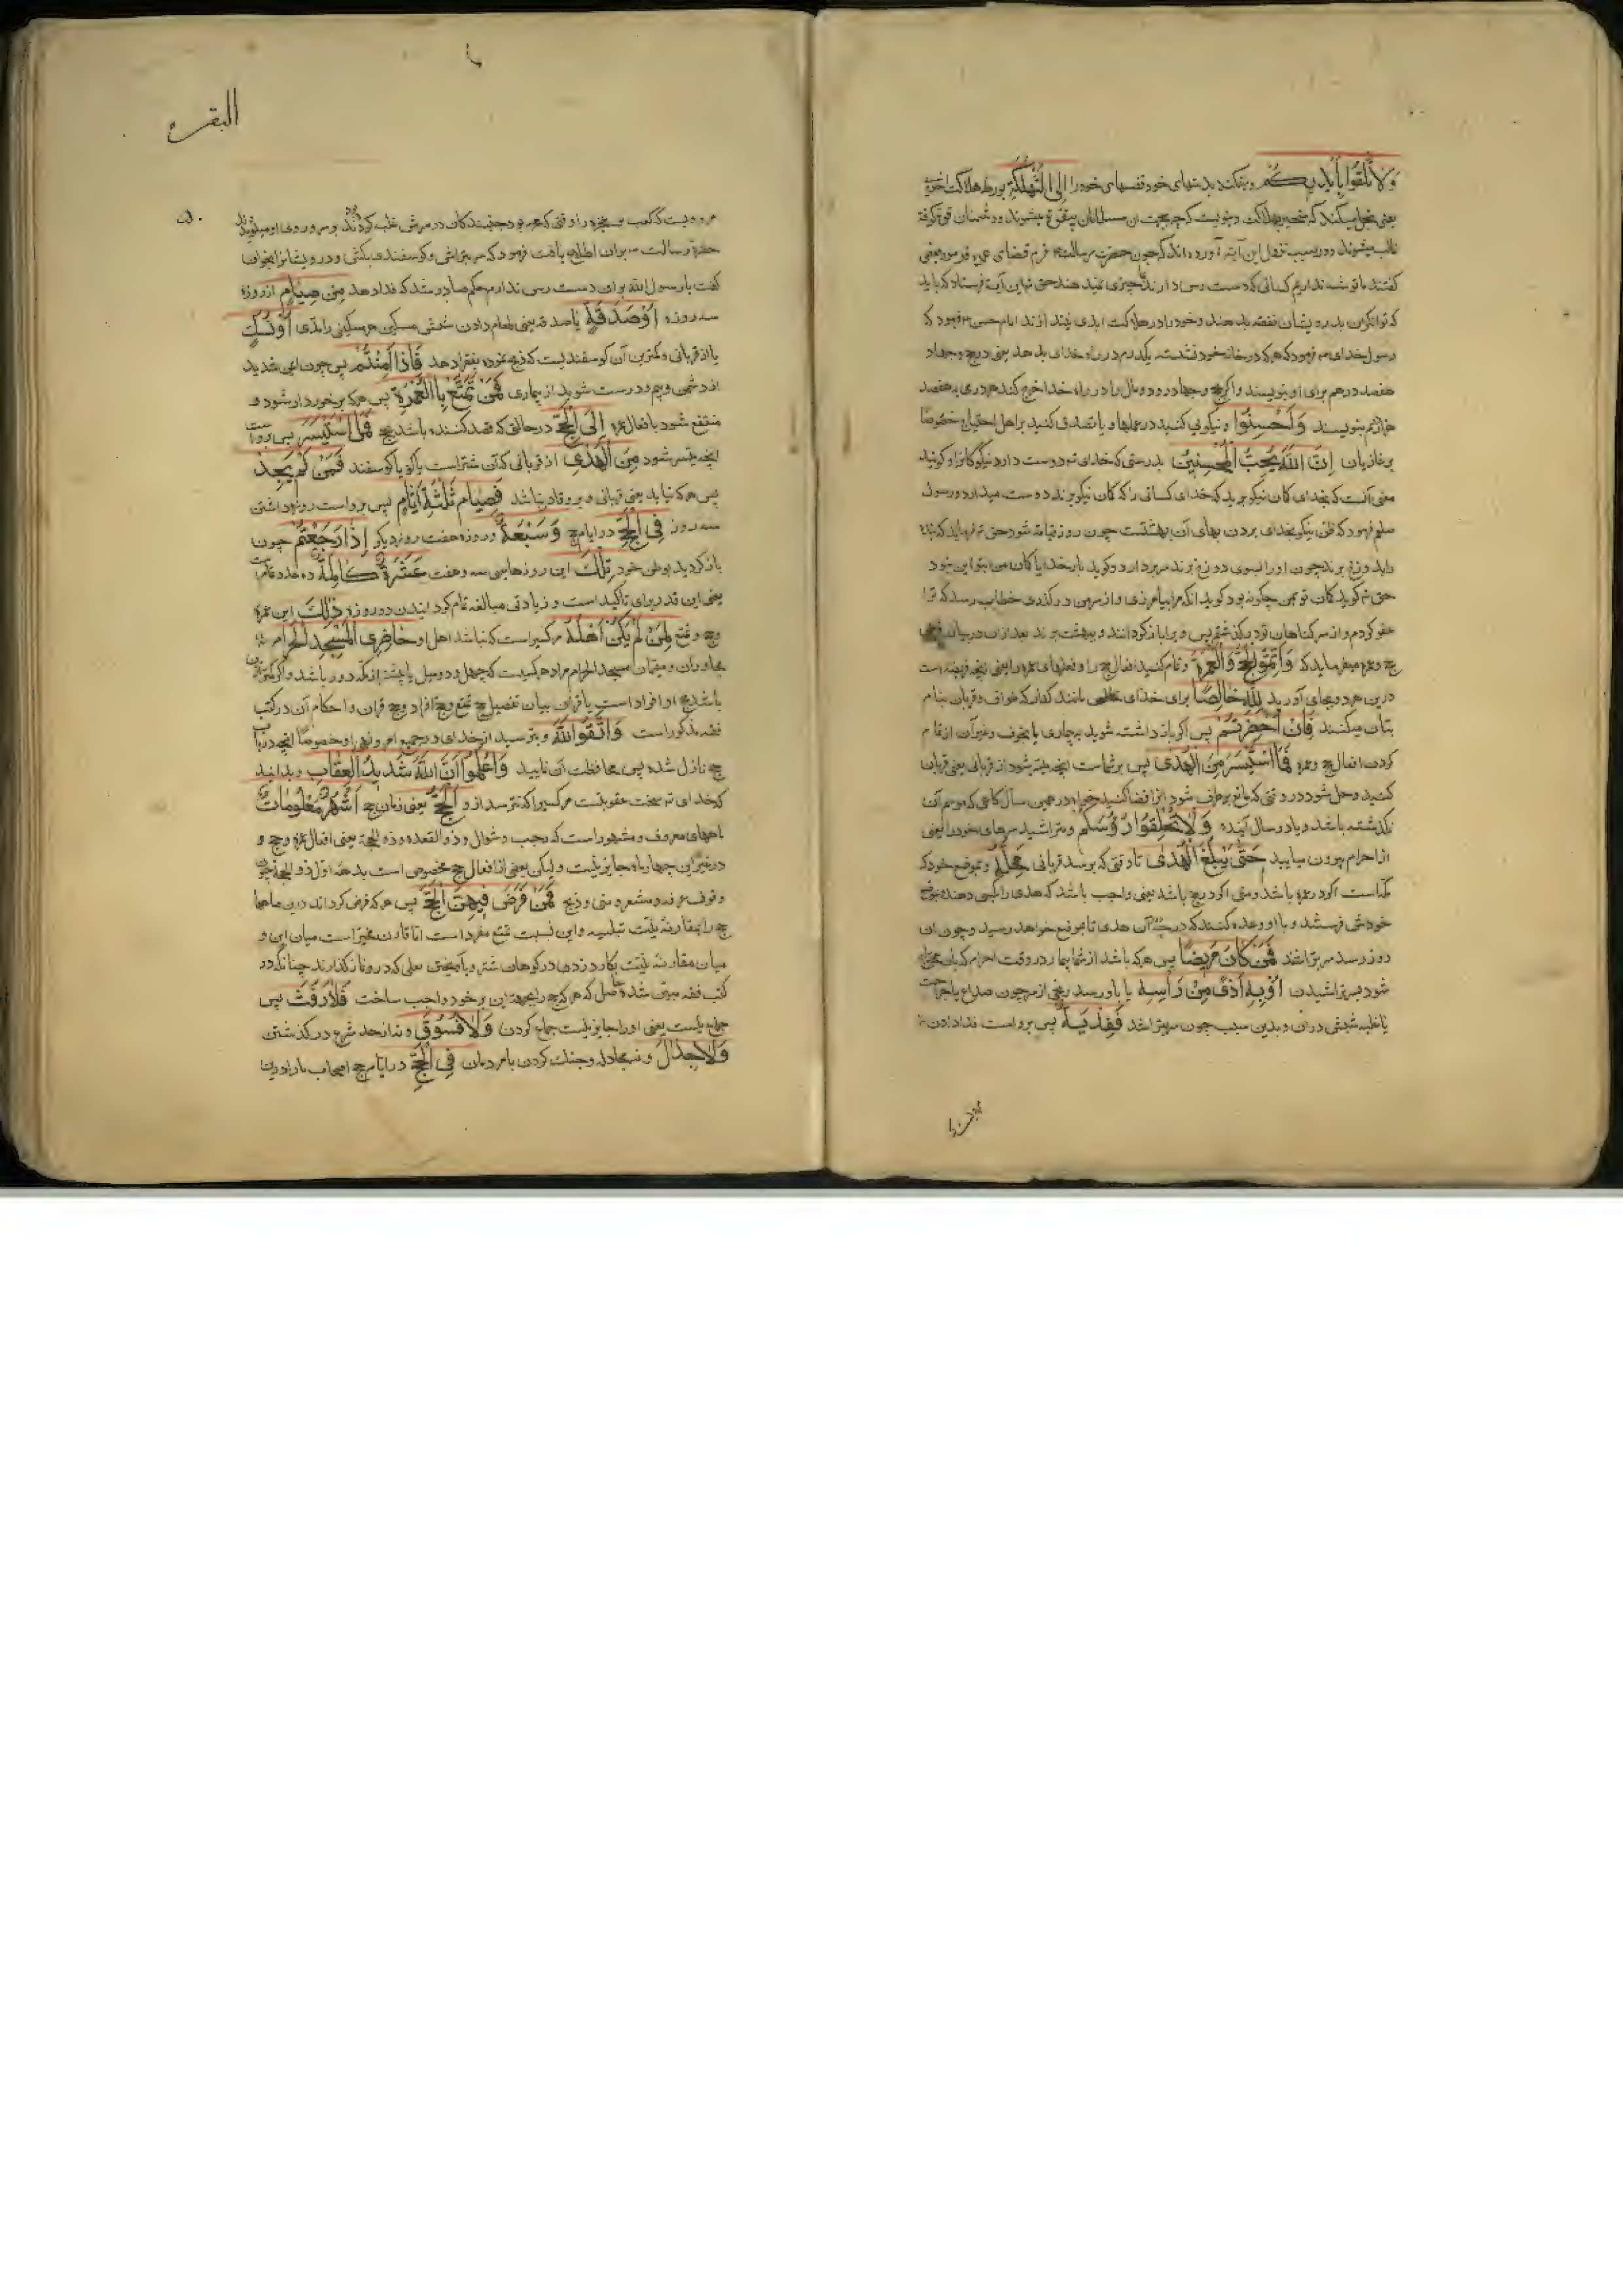 وَلَا تُلْقُوا بِأَيْدِيكُمْ و میفکنید بدستهای خود نفسهای خود را إِلَى التَّهْلُكَةِ بورطه هلاکت
یعنی بخل میکنید که منجر بهلاکت دشمنان قوت گرفته
غالب میشوند و در سبب نزول این آیه آورده‌اند که چون حضرت رسالت عزم قضای عمره فرمود بعضی
گفتند ما توشه نداریم کسانی که دست رس دارند ما را چیزی نمیدهند حق این آیة فرستاد که باید
که توانگران بدرویشان نفقه بدهند و خود را در هلاکت ابدی نیندازند امام حسن فرمود که
رسول خدای فرمود که هر که در خانه خود نشسته یکدرم در راه خدای بدهد یعنی در حج و جهاد
هفصد درهم برای او بنویسند و اگر بحج و جهاد رود و مال را در راه خدا خرج کند هر درمی به هفصد
هزار درهم بنویسند وَأَحْسِنُوا و نیکویی کنید در عملها و یا تصدق کنید بر اهل احتیاج خصوصًا
بر غازیان إِنَّ اللَّهَ يُحِبُّ الْمُحْسِنِينَ بدرستی که خدای تم دوست دارد نیکوکارانرا و گویند
معنی آنست که بخدای گمان نیکو برید که خدای کسانی را که گمان نیکو برند دوست میدارد و رسول
صلعم فرمود که ظن نیکو بخدای بردن بهای آن بهشتست چون روز قیامة شود حق تم فرماید که بنده
را بدوزخ برند چون او را بسوی دوزخ برند سر بردارد و گوید بار خدایا گمان من بتو این نبود
حق تم گوید گمان تو بمن چگونه بود گوید آنکه مرا بیامرزی و از سر من درگذری خطاب رسد که ترا
عفو کردم و از سر گناهان تو درگذشتم پس ویرا بازگردانند و ببهشت برند بعد از آن در بیان
حج و عمره میفرماید که وَأَتِمُّوا الْحَجَّ وَالْعُمْرَةَ و تمام کنید افعال حج را و فعلهای عمره را یعنی آنچه فریضه است
درین هر دو بجای آورید لِلَّهِ خَالِصًا برای خدای نه مانند کفار که طواف و قربان بنام
بتان میکنند فَإِنْ أُحْصِرْتُمْ پس اگر بازداشته شوید به بیماری یا بخوف و غیر آن از تمام
کردن افعال حج و عمره فَمَا اسْتَيْسَرَ مِنَ الْهَدْيِ پس بر شماست آنچه میسر شود از قربانی یعنی قربان
کنید و حل شود در وقتی که مانع برطرف شود آنرا قضا کنید خواه در همین سال گاهی که موسم آن
نگذشته باشد و یا در سال آینده وَلَا تَحْلِقُوا رُءُوسَكُمْ و متراشید سرهای خود را یعنی
از احرام بیرون میایید حَتَّى يَبْلُغَ الْهَدْيُ تا وقتی که برسد قربانی مَحِلَّهُ و بموضع خود که
مکه است اگر در عمره باشد و منی اگر در حج باشد یعنی واجب باشد که هدی را بکسی دهند بموضع
خودش فرستند و با او وعده کنند که در چه آن هدی تا بموضع خواهد رسید و چون آن
روز رسد سر بتراشند فَمَنْ كَانَ مَرِيضًا پس هر که باشد از شما بیمار در وقت احرام که محتاج
شود بسر تراشیدن أَوْ بِهِ أَذًى مِنْ رَأْسِهِ یا باو رسد رنجی از سر چون صداع یا جراحت
یا غلبه شپش در آن و بدین سبب چون سر بتراشد فَفِدْيَةٌ پس برو است فدا دادن
البقره
مرویست که کعب بن عجره در وقتی که محرم بود جنبندگان در سرش غلبه کردند بر سر و روی او میدویدند
حضرة رسالت بر آن اطلاع یافت فرمود که سر بتراش و گوسفندی بکش و درویشانرا بخوران
گفت یا رسول الله بر آن دست رس ندارم حکم صادر شد که فدا دهد مِنْ صِيَامٍ از روزه
سه روزه أَوْ صَدَقَةٍ یا صدقه یعنی طعام دادن شش مسکین هر مسکینی را مدّی أَوْ نُسُكٍ
یا از قربانی و کمترین آن گوسفندیست که ذبح نموده بفقرا دهد فَإِذَا أَمِنْتُمْ پس چون ایمن شدید
از دشمن و بیم و درست شوید از بیماری فَمَنْ تَمَتَّعَ بِالْعُمْرَةِ پس هر که برخوردار شود و
منتفع شود بافعال عمره إِلَى الْحَجِّ در حالتی که قصد کننده باشد بحج فَمَا اسْتَيْسَرَ پس برواست
آنچه میسر شود مِنَ الْهَدْيِ از قربانی که آن شتر است یا گاو یا گوسفند فَمَنْ لَمْ يَجِدْ
پس هر که نیابد یعنی قربانی و برو قادر نباشد فَصِيَامُ ثَلَاثَةِ أَيَّامٍ پس برو است روزه داشتن
سه روز فِي الْحَجِّ در ایام حج وَسَبْعَةٍ و روزه هفت روز دیگر إِذَا رَجَعْتُمْ چون
بازگردید بوطن خود تِلْكَ این روزهای سه و هفت عَشَرَةٌ كَامِلَةٌ ده عدد تمام
یعنی این قدر برای تاکید است و زیادتی مبالغه تمام گردانیدن دو روزه ذَلِكَ این عمره
و حج و تمتع لِمَنْ لَمْ يَكُنْ أَهْلُهُ مر کسیراست که نباشد اهل او حَاضِرِي الْمَسْجِدِ الْحَرَامِ
مجاوران و مقیمان مسجد الحرام مراد کسیست که چهل و دو میل یا بیشتر از مکه دور باشد و اگر کمتر
باشد حج او افراد است یا قران بیان تفصیل حج تمتع و حج افراد و حج قران و احکام آن در کتب
فقه مذکور است وَاتَّقُوا اللَّهَ و بترسید از خدای در جمیع امر و نهی او خصوصًا آنچه در باب
حج نازل شده پس محافظت آن نمایید وَاعْلَمُوا أَنَّ اللَّهَ شَدِيدُ الْعِقَابِ و بدانید
که خدای تم سخت عقوبتست مر کسیرا که نترسد ازو الْحَجُّ یعنی زمان حج أَشْهُرٌ مَعْلُومَاتٌ
ماههای معروف و مشهور است که رجب و شوال و ذو القعده و ذو الحجة یعنی افعال عمره و حج و
در غیر این چهار ماه جایز نیست ولیکن بعضی از افعال حج مخصوص است بدهه اول ذو الحجة چون
وقوف عرفه و مشعر و منی و ذبح فَمَنْ فَرَضَ فِيهِنَّ الْحَجَّ پس هر که فرض گرداند درین ماهها
حج را بمقارنه نیّت تبلبیه و این نسبت تمتع مفرد است اما قارن مخیر است میان این و
میان مقارنه نیّت بکارد زدن در کوهان شتر و یا آویختن نعلی که در و نماز گذارند چنانکه در
کتب فقه مبیّن شده حاصل که هر که حج را بر خود واجب ساخت فَلَا رَفَثَ پس
جماع نیست یعنی او را جایز نیست جماع کردن وَلَا فُسُوقَ و نه از حد شرع درگذشتن
وَلَا جِدَالَ و نه مجادله و جنگ کردن با مردمان فِي الْحَجِّ در ایام حج اصحاب ما را درین